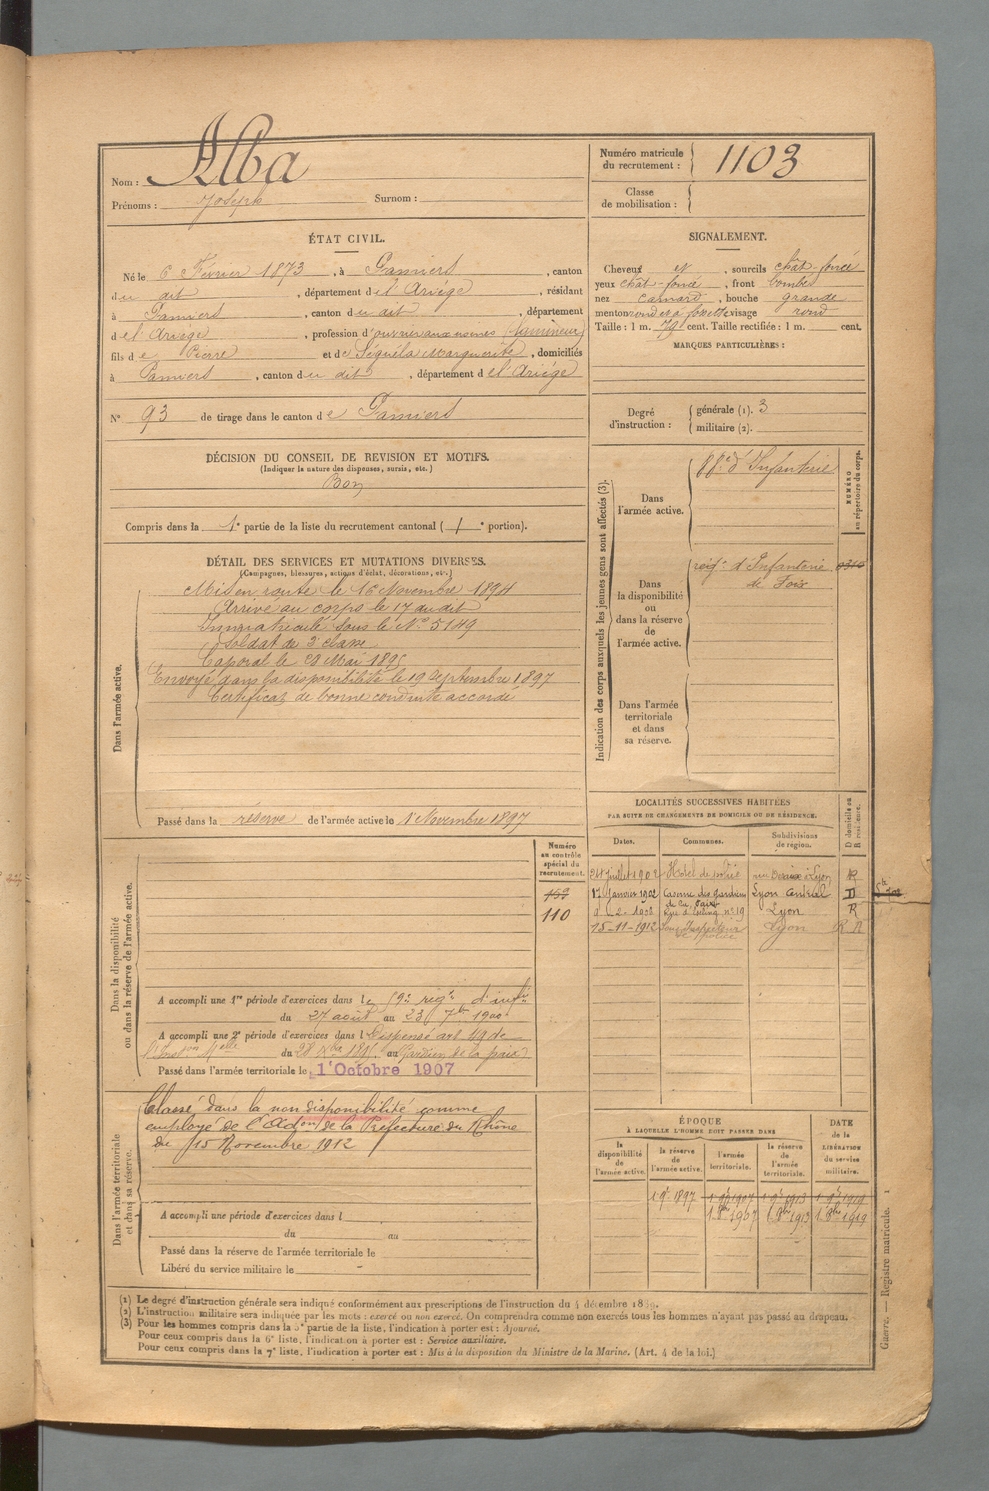 Nom : Alba
Prénoms : Joseph Surnom :
Numéro matricule du recrutement : 1103
Classe de mobilisation :
ÉTAT CIVIL.
Né le 6 Février 1873, à Pamiers, canton
du dit, département de l'Ariège, résidant
à Pamiers, canton du dit, département
de l'Ariège, profession d'ouvrier aux usines (lamineur)
fils de Pierre et de Séguéla Marguerite, domiciliés
à Pamiers, canton du dit, département de l'Ariège
N° 93 de tirage dans le canton de Pamiers
SIGNALEMENT.
Cheveux et , sourcils chât-foncé
yeux chât-foncé, front bombé
nez camard, bouche grande
menton rond et à fossette visage rond
Taille : 1 m. 79 cent. Taille rectifiée : 1 m. cent.
MARQUES PARTICULIÈRES :
Degré d'instruction : générale (1). 3
militaire (2).
DÉCISION DU CONSEIL DE REVISION ET MOTIFS.
(Indiquer la nature des dispenses, sursis, etc.)
Bon
Compris dans la 1e partie de la liste du recrutement cantonal ( / e portion).
DÉTAIL DES SERVICES ET MUTATIONS DIVERSES.
(Campagnes, blessures, actions d'éclat, décorations, etc.)
Dans l'armée active.
Mis en route le 16 Novembre 1894
Arrivé au corps le 17 du dit
Immatriculé sous le N° 5149
Soldat de 2e classe
Caporal le 28 Mai 1895
Envoyé dans la disponibilité le 19 Septembre 1897
Certificat de bonne conduite accordé
Passé dans la réserve de l'armée active le 1 Novembre 1897
Indication des corps auxquels les jeunes gens sont affectés (3).
NUMÉRO au répertoire du corps.
Dans l'armée active.
88e d'Infanterie
Dans la disponibilité ou dans la réserve de l'armée active.
régt d'Infanterie
de Foix
Dans l'armée territoriale et dans sa réserve.
LOCALITÉS SUCCESSIVES HABITÉES
PAR SUITE DE CHANGEMENTS DE DOMICILE OU DE RÉSIDENCE.
Dates. Communes. Subdivisions de région. D domicile ou R résidence.
24 Juillet 1902 Hôtel de police Lyon R
17 Janvier 1902 Caserne des gardiens de la paix Lyon central D
9-2-1908 n° 19 Lyon R
15-11-1912 Sous Inspecteur de police Lyon R
Dans la disponibilité ou dans la réserve de l'armée active.
Numéro au contrôle spécial du recrutement.
110
A accompli une 1re période d'exercices dans le 59e régt d'infie
du 27 août au 23 7bre 1900
A accompli une 2e période d'exercices dans l Dispensé art 49 de
l'Inston Melle du 28 Xbre 1895 au Gardien de la paix
Passé dans l'armée territoriale le 1r Octobre 1907
Dans l'armée territoriale et dans sa réserve.
Classé dans la non disponibilité comme
employé de l'Adon de la Préfecture du Rhône
du 15 Novembre 1912
A accompli une période d'exercices dans l
du au
Passé dans la réserve de l'armée territoriale le
Libéré du service militaire le
ÉPOQUE
À LAQUELLE L'HOMME DOIT PASSER DANS
DATE de la LIBÉRATION du service militaire.
la disponibilité de l'armée active. la réserve de l'armée active. l'armée territoriale. la réserve de l'armée territoriale.
1 9b 1897 1 9b 1907 1 9b 1913 1 9b 1919
1 8bre 1907 1 8bre 1913 1 8bre 1919
(1) Le degré d'instruction générale sera indiqué conformément aux prescriptions de l'instruction du 4 décembre 1889.
(2) L'instruction militaire sera indiquée par les mots : exercé ou non exercé. On comprendra comme non exercés tous les hommes n'ayant pas passé au drapeau.
(3) Pour les hommes compris dans la 5e partie de la liste, l'indication à porter est : Ajourné.
Pour ceux compris dans la 6e liste, l'indication à porter est : Service auxiliaire.
Pour ceux compris dans la 7e liste, l'indication à porter est : Mis à la disposition du Ministre de la Marine. (Art. 4 de la loi.)
Guerre. — Registre matricule. 1